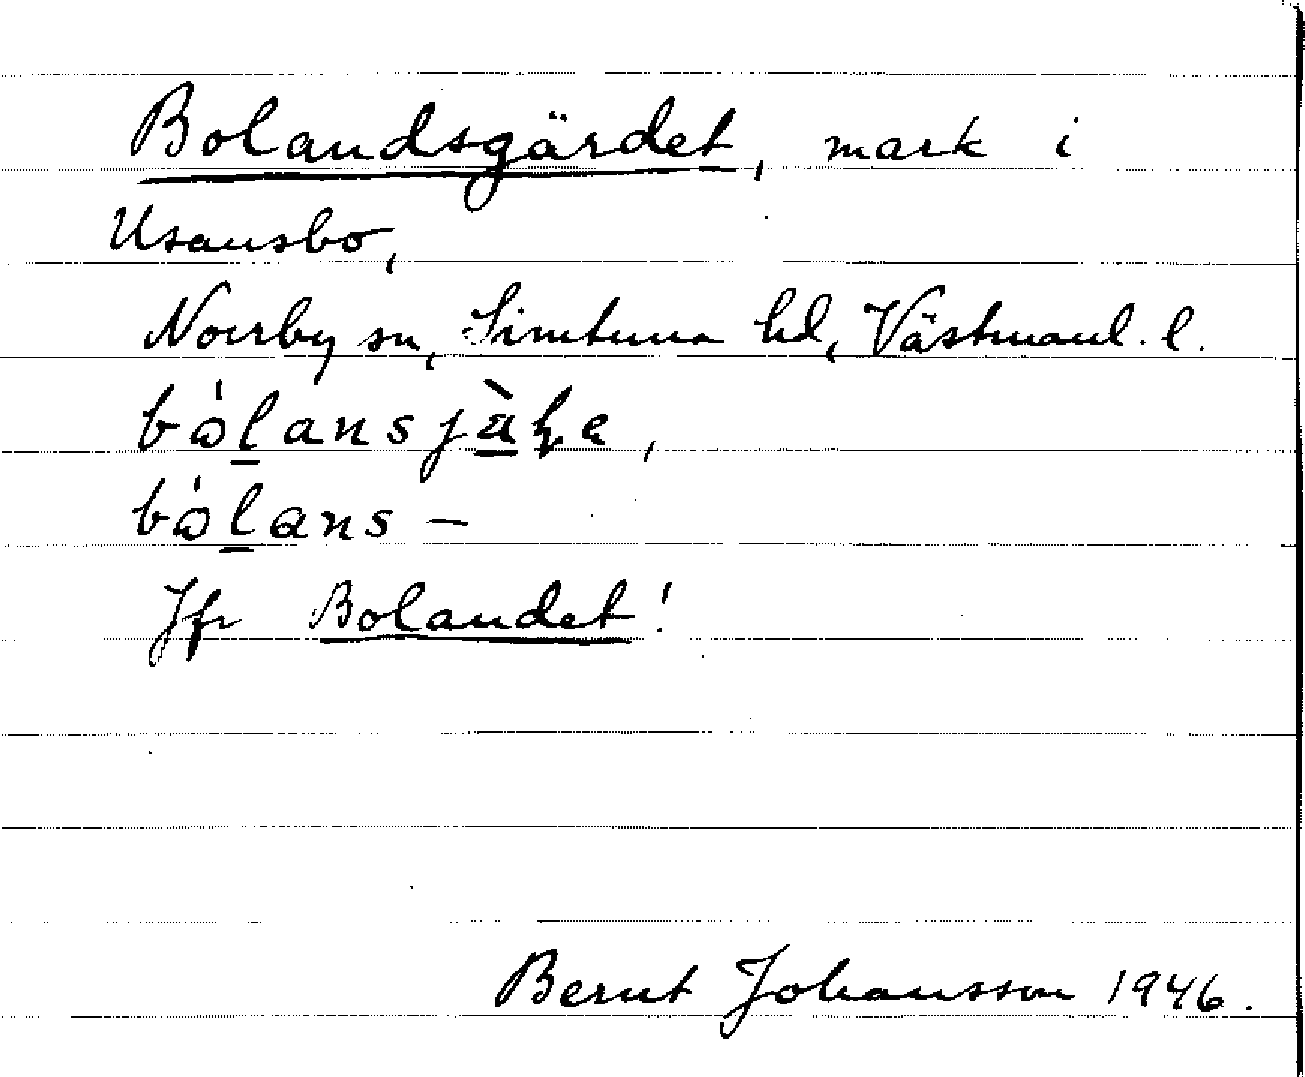 Bolandsgärdet, mark i
Usansbo,
Norrby sn, Simtuna hd, Västmanl. l.
Jfr Bolandet!
Bernt Johansson 1946.